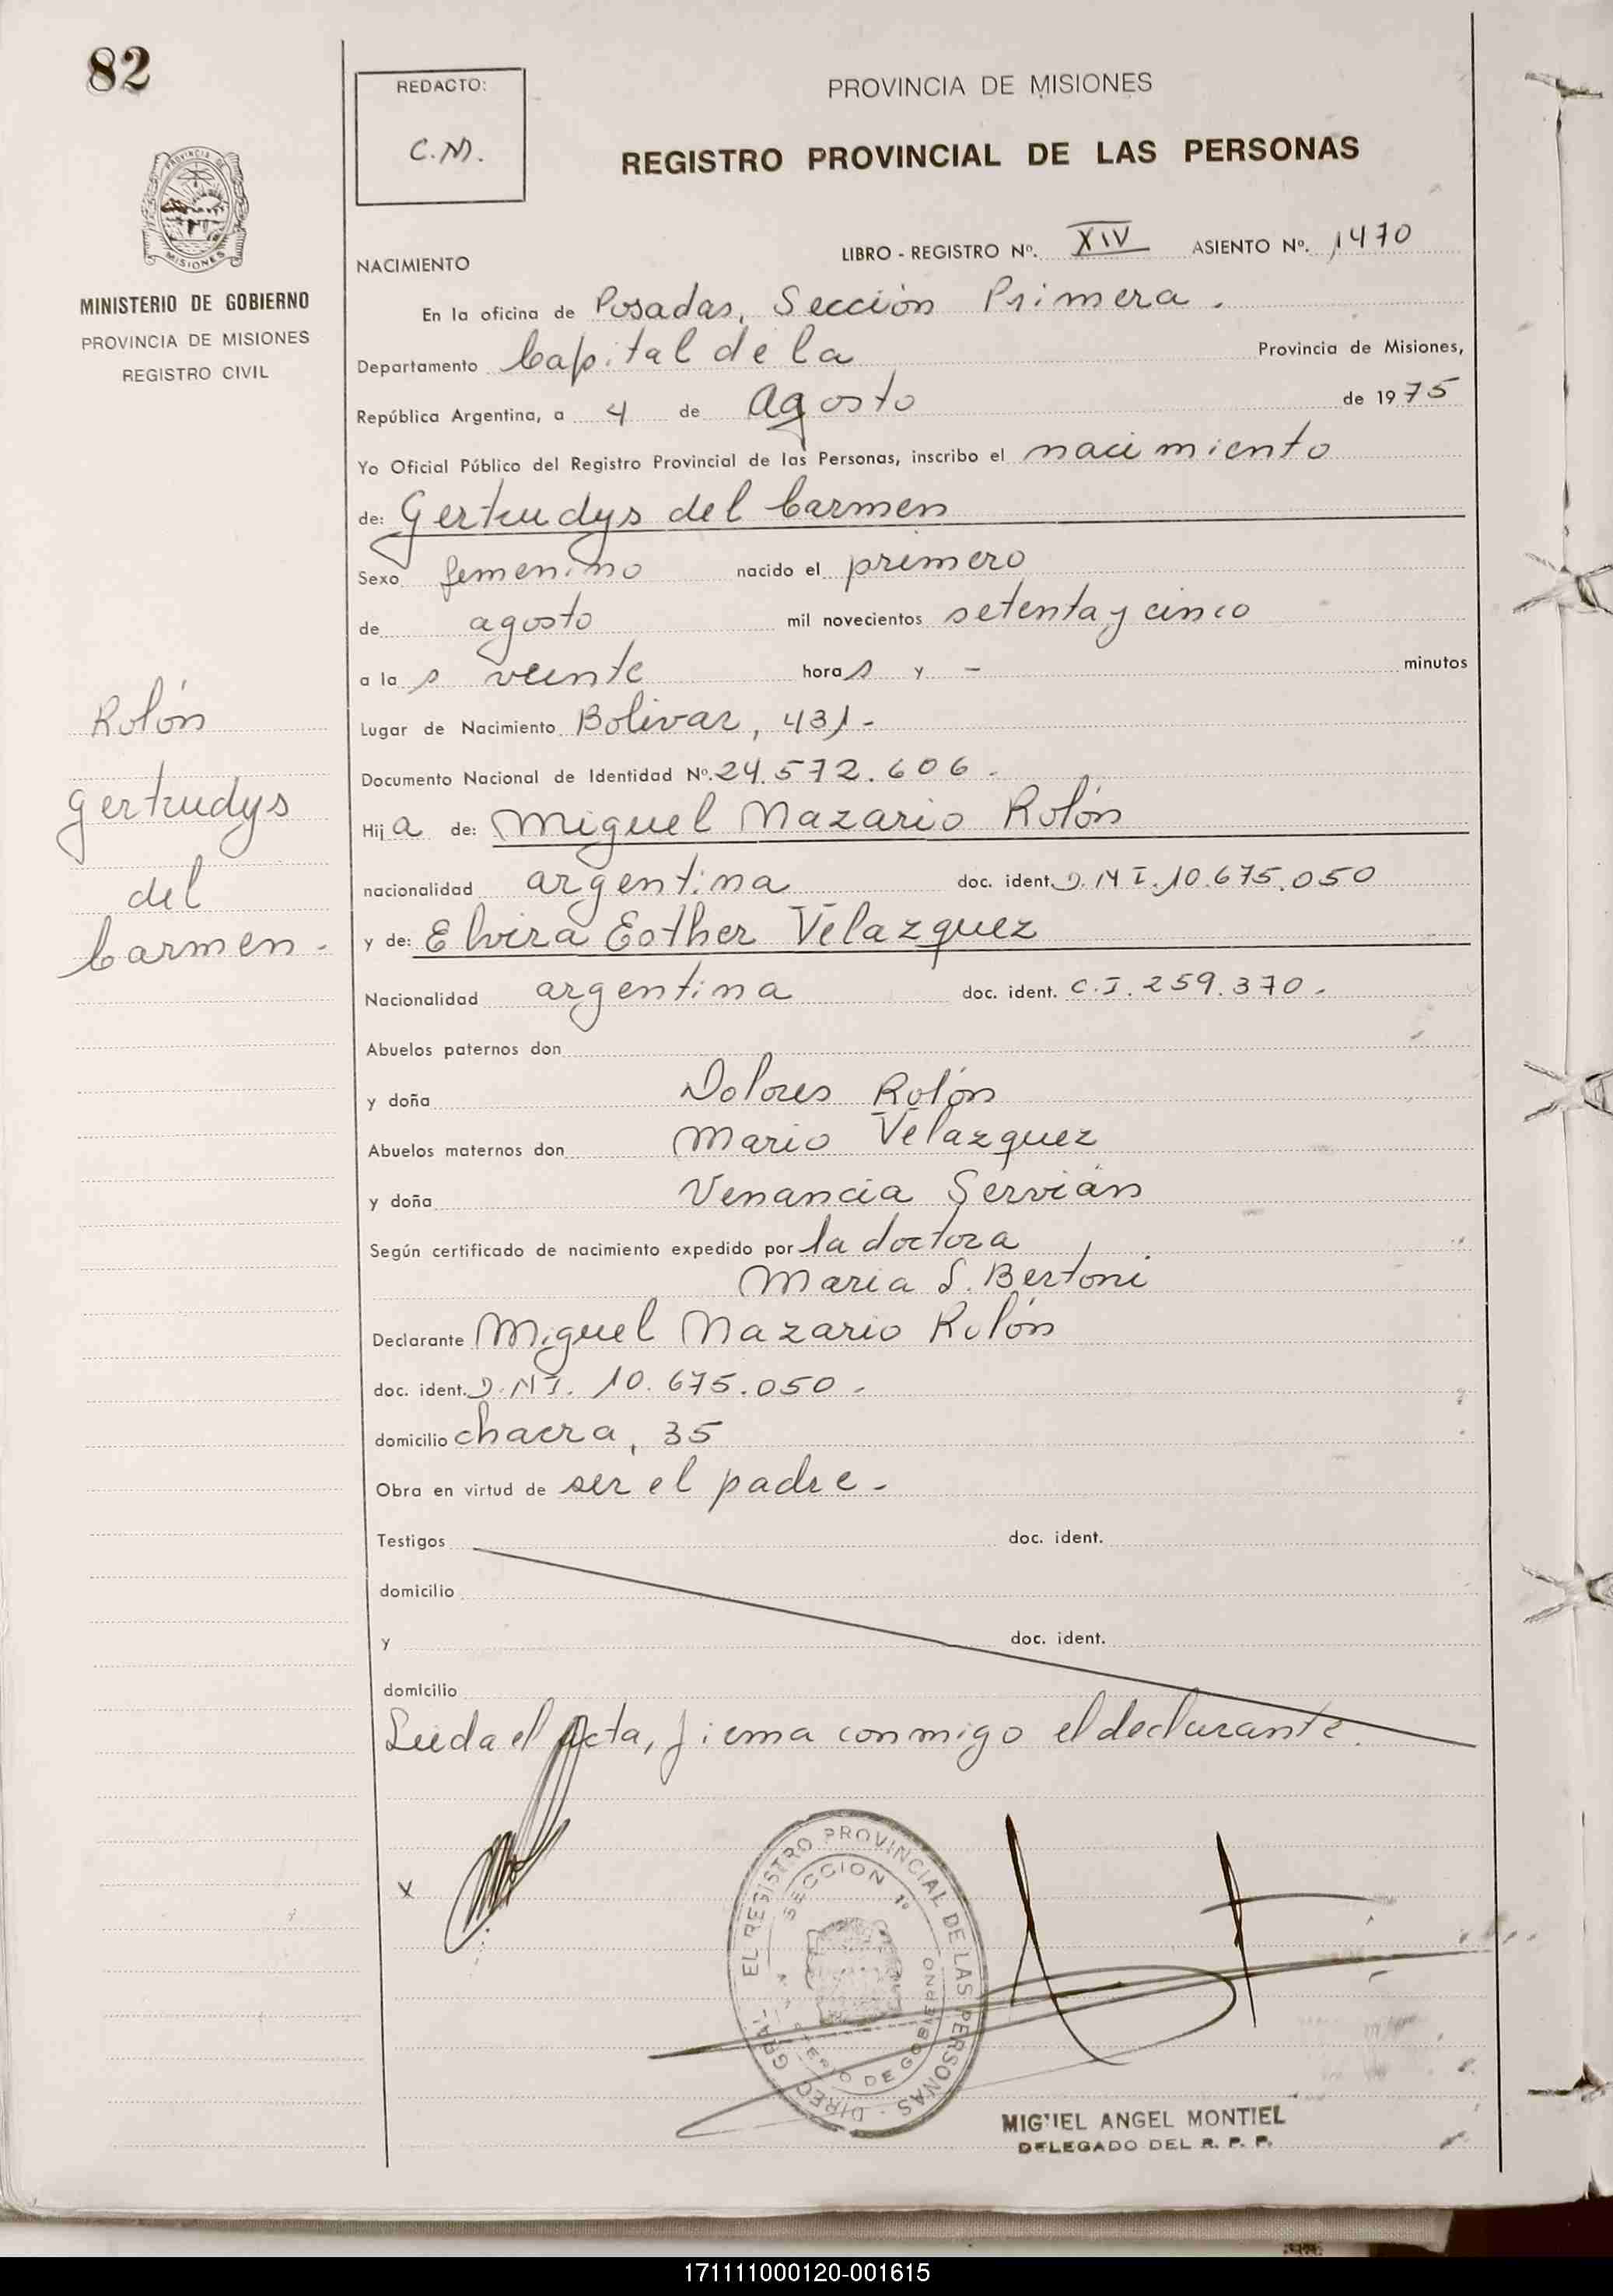 82
REDACTO:
C.M.
PROVINCIA DE MISIONES
REGISTRO PROVINCIAL DE LAS PERSONAS
PROVINCIA DE
MISIONES
MINISTERIO DE GOBIERNO
PROVINCIA DE MISIONES
REGISTRO CIVIL
NACIMIENTO
LIBRO - REGISTRO Nº. XIV ASIENTO Nº. 1470
En la oficina de Posadas, Sección Primera.
Departamento Capital de la Provincia de Misiones,
República Argentina, a 4 de Agosto de 1975
Yo Oficial Público del Registro Provincial de las Personas, inscribo el nacimiento
de: Gertrudys del Carmen
Sexo femenino nacido el primero
de agosto mil novecientos setenta y cinco
a la s veinte hora s y - minutos
Lugar de Nacimiento Bolivar, 431-
Documento Nacional de Identidad Nº. 24.572.606.
Hij a de: Miguel Nazario Rolón
nacionalidad argentina doc. ident. D.N.I. 10.675.050
y de: Elvira Esther Velazquez
Nacionalidad argentina doc. ident. C.I. 259.370.
Abuelos paternos don
y doña Dolores Rolón
Abuelos maternos don Mario Velazquez
y doña Venancia Servián
Según certificado de nacimiento expedido por la doctora
Maria S. Bertoni
Declarante Miguel Nazario Rolón
doc. ident. D.N.I. 10.675.050.
domicilio chacra, 35
Obra en virtud de ser el padre.
Testigos doc. ident.
domicilio
y doc. ident.
domicilio
Leida el Acta, firma conmigo el declarante.
Rolón
Gertrudys
del
Carmen-
x
DIREC. GRAL. EL REGISTRO PROVINCIAL DE LAS PERSONAS
SECCION 1º
DE GOBIERNO
MIGUEL ANGEL MONTIEL
DELEGADO DEL R. P. P.
171111000120-001615